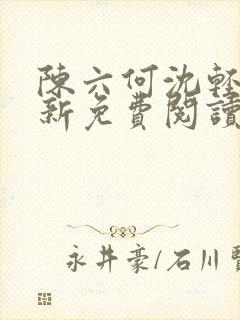 陳六何沈輕
新免費閱讀
永井豪/石川賢